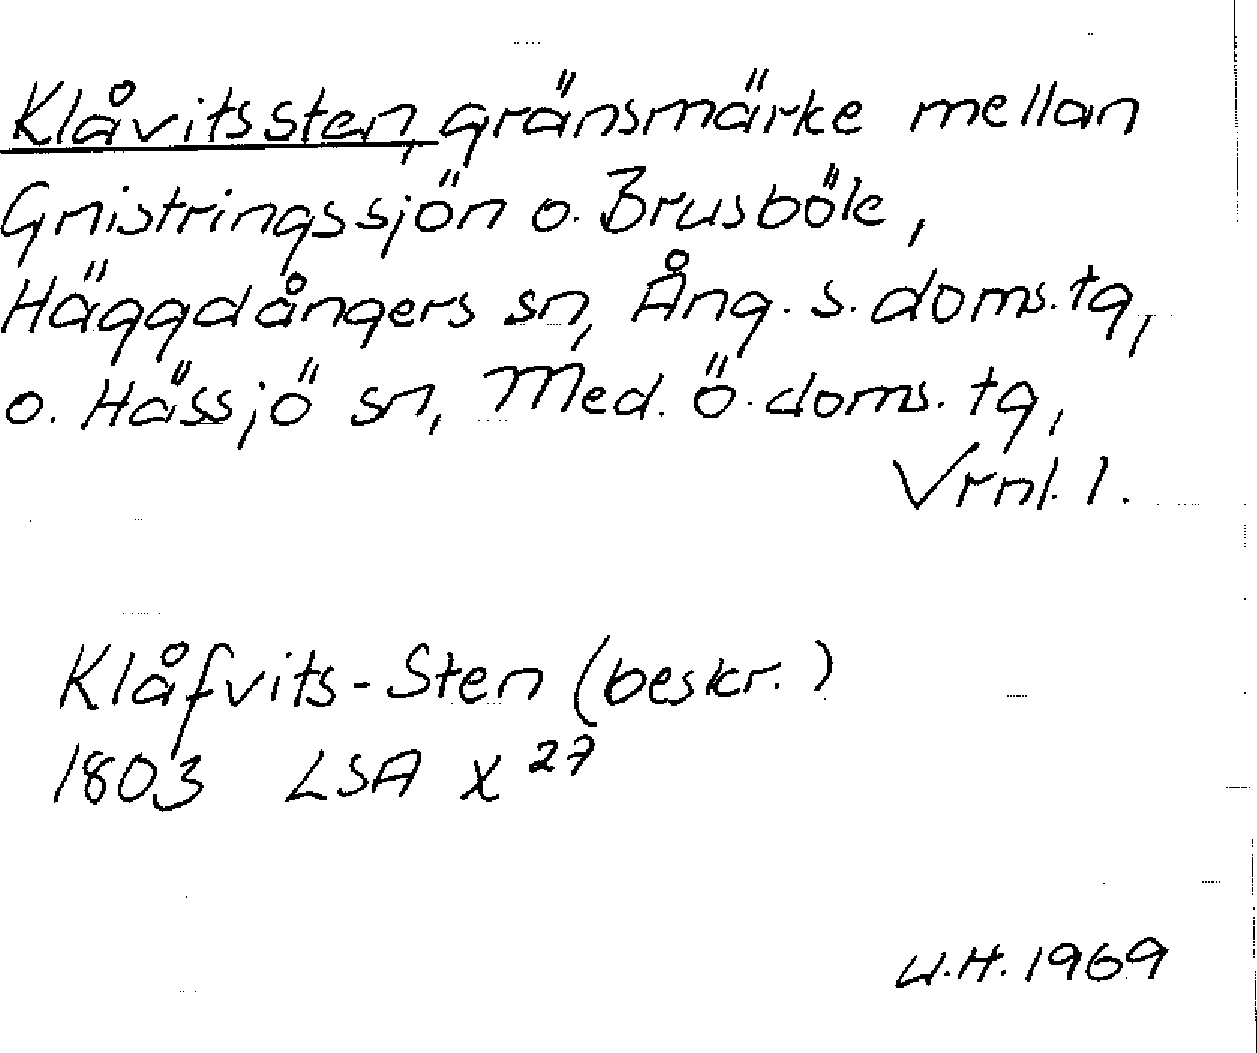 Klåvitssten, gränsmärke mellan
Gnistringssjön o. Brusböle,
Häggdångers sn, Ång. s. doms. tg,
o. Hässjö sn, Med. ö. doms. tg,
Vrnl. l.
Klåfvits-Sten (beskr.)
1803 LSA X 27
U.H. 1969